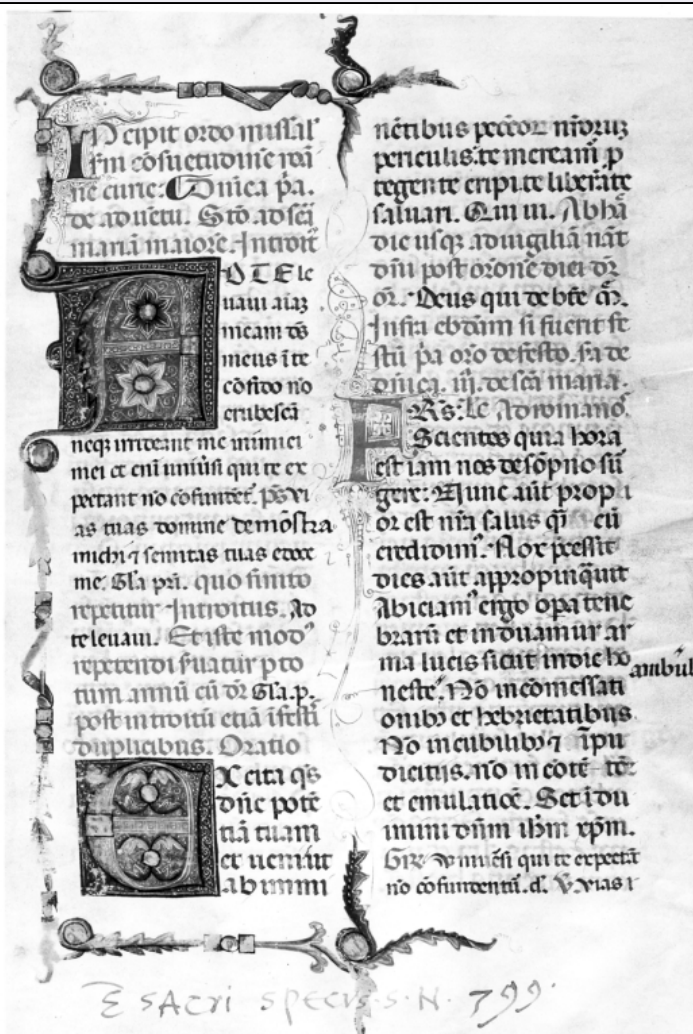 INcipit ordo missal̄
s̄m cōsuetudinē roā
ne curie. Dn̄ica p̄a.
de aduētu. Stō ad scā
mariā maiorē. Introit̄
AD TE le
uaui aīaȝ
meam ds̄
meus ī te
cōfido nō
erubescā
neqȝ irrideant me inimici
mei et eni uniūsi qui te ex
pectant nō cōfundēt. ps̄ Vi
as tuas domine demōstra
michi ⁊ semitas tuas edoce
me. Gl̄a pr̄i. quo finito
repetitur Introitus. Ad
te leuaui. Et iste modꝰ
repetendi s̄uatur p to
tum annū cū dr̄ Gl̄a p̄.
post introitū etiā ī festī
duplicibus. Oratio
EXcita qs̄
dn̄e potē
tiā tuam
et ueni ut
ab immi
nētibus pec̄cor nr̄oruȝ
periculis. te meream̄ p
tegente eripi. te liberāte
saluari. Qui ui. Ab hā
die usqȝ ad uigiliā nāt
dn̄i post orōnē diei dr̄
or̄. Deus qui de bt̄e m̄.
Infra ebdam̄ si fuerit fe
stū p̄a orō de festo. s̄a de
dn̄ica. iij. de scā maria.
Ad romanoˢ.
FRs̄: Scientes quia hora
est iam nos de sōpno sū
gere. Nunc aūt propi
or est nr̄a salus qȝ cū
credidimꝰ. Nox prec̄essit
dies aūt appropinquit
Abiciamꝰ ergo op̄a tene
brarū et induamur ar
ma lucis sicut in die ho
neste ambulꝰ. Nō in comessati
onibȝ et hebrietatibus
Nō in cubilibȝ ⁊ īpu
dicitijs. nō in cōtē tōe
et emulatiōe. Set īdu
imini dn̄m ih̄m xp̄m.
Gr̄. Vniuersi qui te expectāt
nō cōfundentur. d̄. V̄. Vias t
E SACRI SPECVS. S. N. 799.